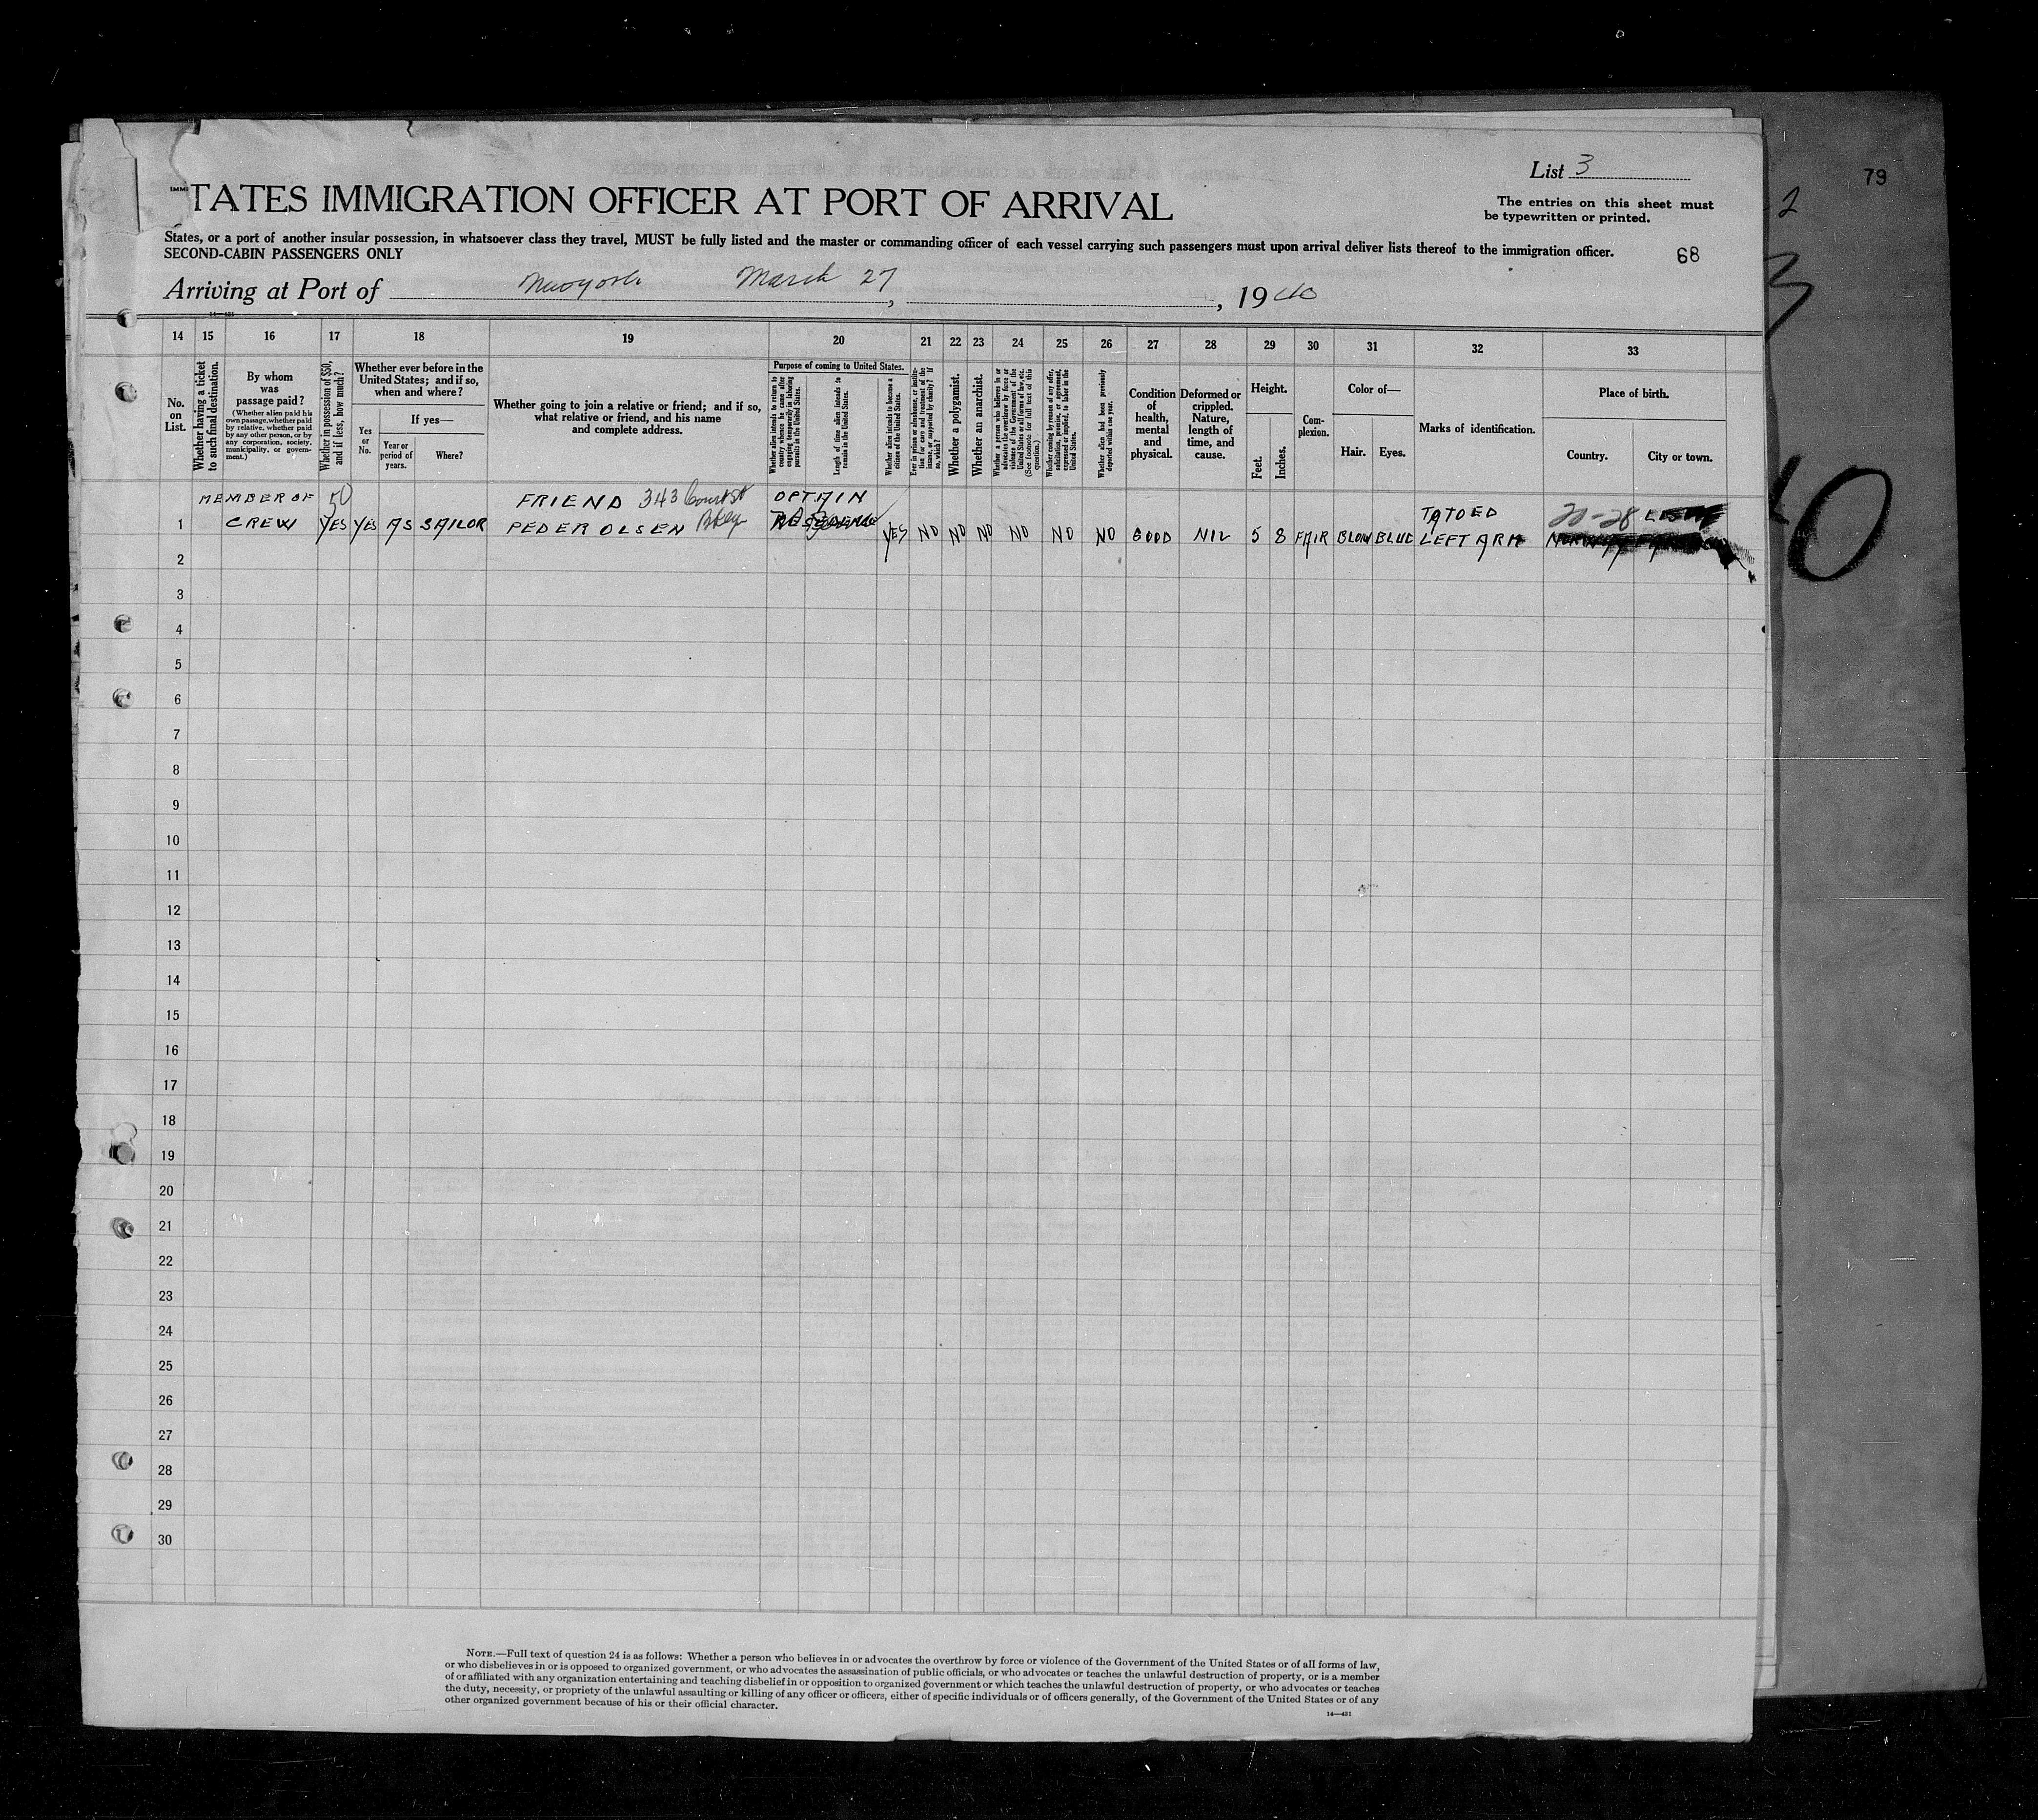 79
List 3
The entries on this sheet must
be typewritten or printed.
TATES IMMIGRATION OFFICER AT PORT OF ARRIVAL
States, or a port of another insular possession, in whatsoever class they travel, MUST be fully listed and the master or commanding officer of each vessel carrying such passengers must upon arrival deliver lists thereof to the immigration officer.
SECOND-CABIN PASSENGERS ONLY
68
Arriving at Port of Newyork March 27, , 1940
14—431
14 15 16 17 18 19 20 21 22 23 24 25 26 27 28 29 30 31 32 33
No. on List.
Whether having a ticket to such final destination.
By whom was passage paid?
(Whether alien paid his own passage, whether paid by relative, whether paid by any other person, or by any corporation, society, municipality, or government.)
Whether in possession of $50, and if less, how much?
Whether ever before in the United States; and if so, when and where?
Yes or No.
If yes—
Year or period of years.
Where?
Whether going to join a relative or friend; and if so, what relative or friend, and his name and complete address.
Purpose of coming to United States.
Whether alien intends to return to country whence he came after engaging temporarily in laboring pursuits in the United States.
Length of time alien intends to remain in the United States.
Whether alien intends to become a citizen of the United States.
Ever in prison or almshouse, or institution for care and treatment of the insane, or supported by charity? If so, which?
Whether a polygamist.
Whether an anarchist.
Whether a person who believes in or advocates the overthrow by force or violence of the Government of the United States or all forms of law, etc. (See footnote for full text of this question.)
Whether coming by reason of any offer, solicitation, promise, or agreement, expressed or implied, to labor in the United States.
Whether alien had been previously deported within one year.
Condition of health, mental and physical.
Deformed or crippled. Nature, length of time, and cause.
Height.
Feet.
Inches.
Complexion.
Color of—
Hair.
Eyes.
Marks of identification.
Place of birth.
Country.
City or town.
MEMBER OF 50 FRIEND 343 Court St OPTAIN TATOED 20-28
1 CREW YES YES AS SAILOR PEDER OLSEN Bklyn YES NO NO NO NO NO NO GOOD NIL 5 8 FAIR BLOW BLUE LEFT ARM
2
3
4
5
6
7
8
9
10
11
12
13
14
15
16
17
18
19
20
21
22
23
24
25
26
27
28
29
30
NOTE.—Full text of question 24 is as follows: Whether a person who believes in or advocates the overthrow by force or violence of the Government of the United States or of all forms of law,
or who disbelieves in or is opposed to organized government, or who advocates the assassination of public officials, or who advocates or teaches the unlawful destruction of property, or is a member
of or affiliated with any organization entertaining and teaching disbelief in or opposition to organized government or which teaches the unlawful destruction of property, or who advocates or teaches
the duty, necessity, or propriety of the unlawful assaulting or killing of any officer or officers, either of specific individuals or of officers generally, of the Government of the United States or of any
other organized government because of his or their official character.
14—431